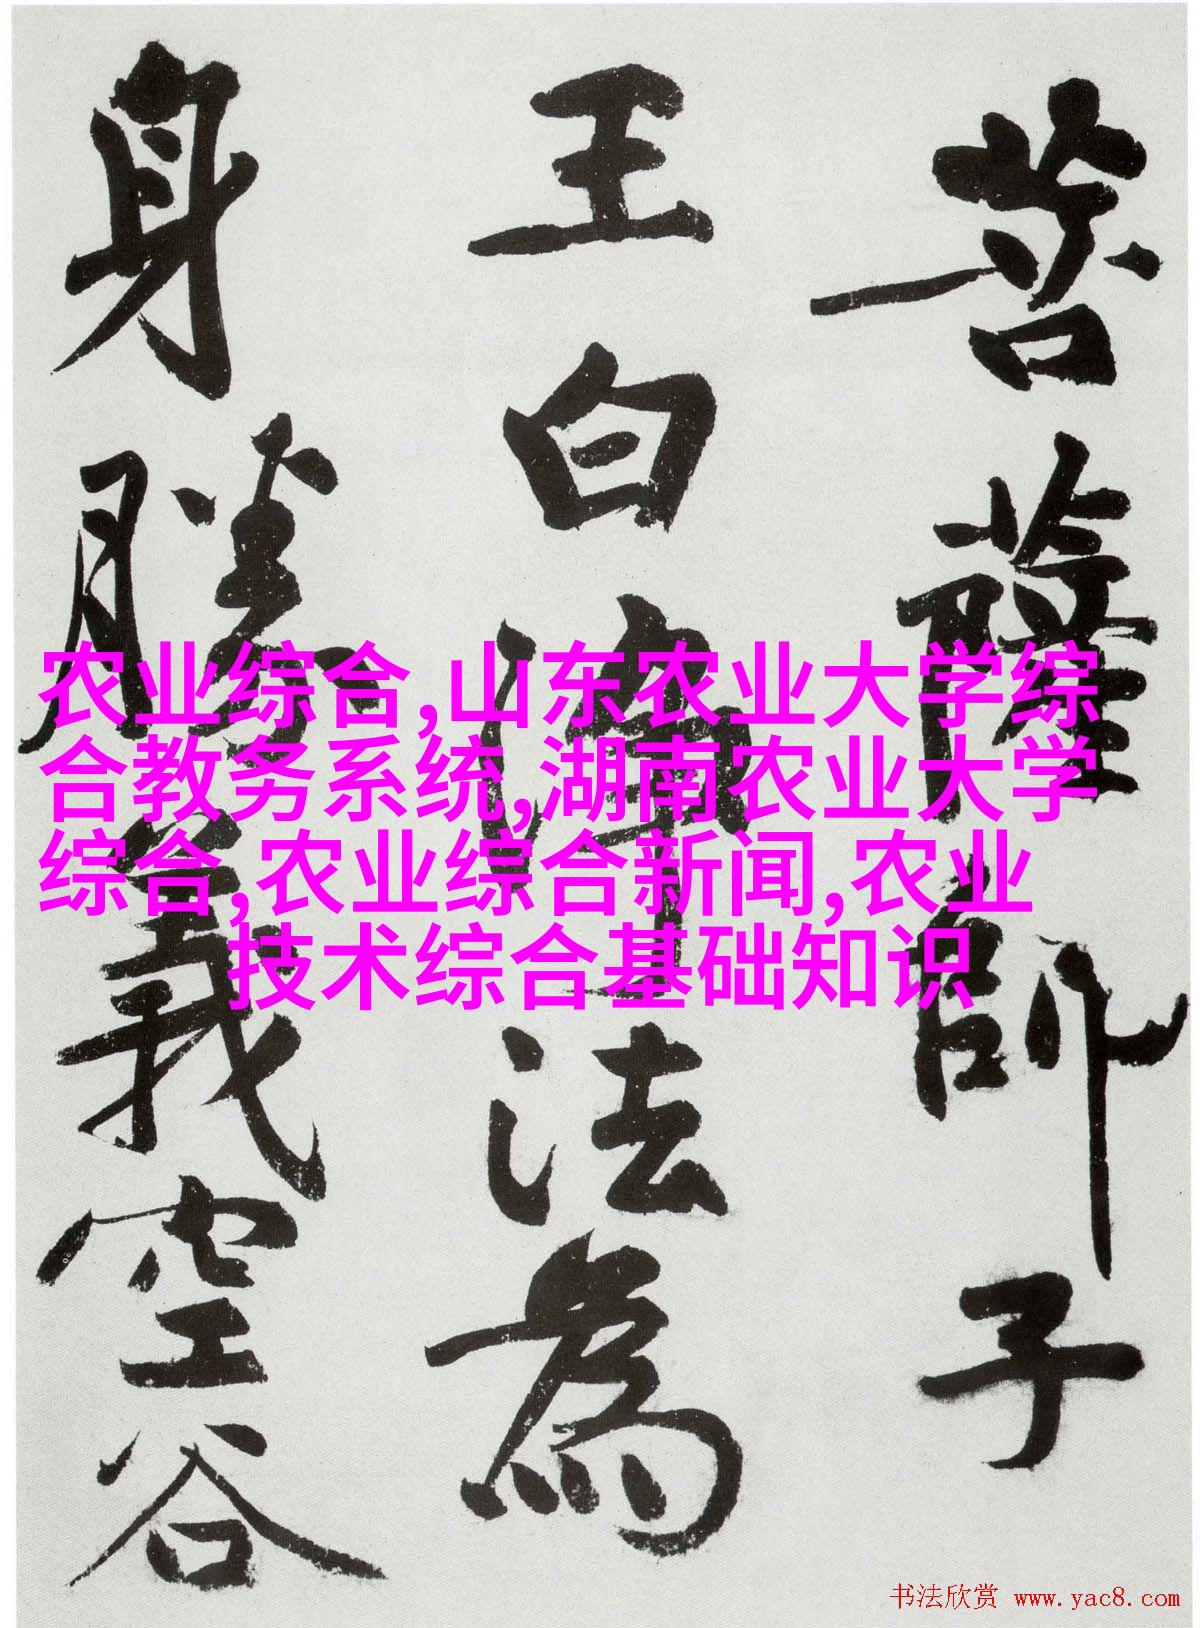 菩薩師子
王白淨法為
身勝義空谷
农业综合,山东农业大学综
合教务系统,湖南农业大学
综合,农业综合新闻,农业
技术综合基础知识
书法欣赏 www.yac8.com